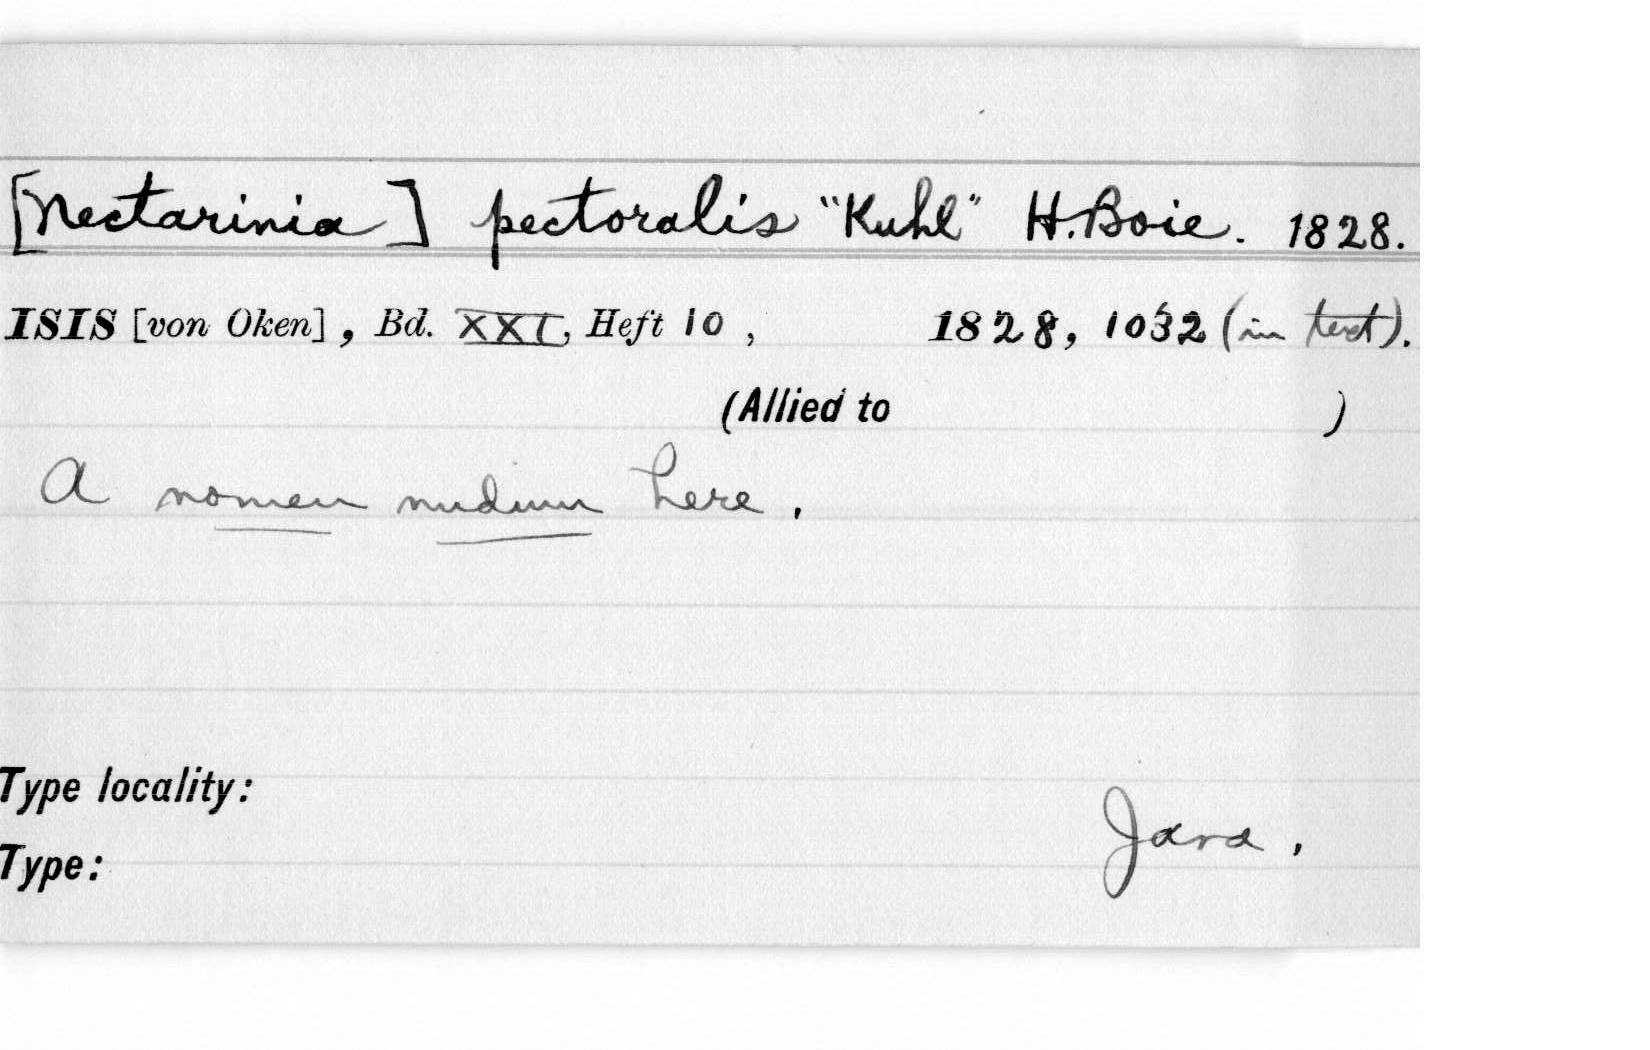 [Nectarinia] pectoralis "Kuhl" H. Boie. 1828.
ISIS [von Oken], Bd. XXI, Heft 10, 1828, 1032 (in text).
(Allied to )
A nomen nudum here.
Type locality:
Java.
Type: